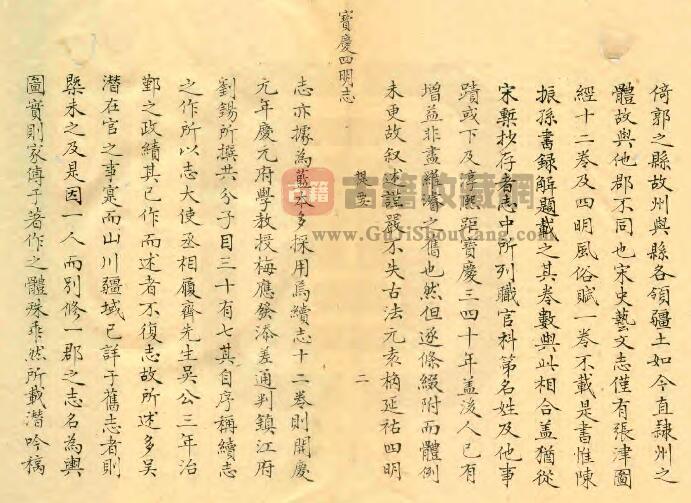 倚郭之縣故州與縣各領疆土如今直隸州之
體故與他郡不同也宋史藝文志僅有張津圖
經十二卷及四明風俗賦一卷不載是書惟陳
振孫書錄解題載之其卷數與此相合蓋猶從
宋槧抄存者志中所列職官科第名姓及他事
蹟或下及淳熙距寶慶三四十年蓋後人已有
增益非盡羅濬之舊也然但逐條綴附而體例
未更故叙述謹嚴不失古法元袁桷延祐四明
寶慶四明志
提要
二
志亦據為藍本多採用焉續志十二卷則開慶
元年慶元府學教授梅應發添差通判鎮江府
劉錫所撰共分子目三十有七其自序稱續志
之作所以志大使丞相履齋先生吳公三年治
鄞之政績其已作而述者不復志故所述多吳
潛在官之事實而山川疆域已詳于舊志者則
槩未之及是因一人而別修一郡之志名為輿
圖實則家傳于著作之體殊乖然所載潛吟稿
古籍
古籍收藏网
www.GuJiShouCang.com